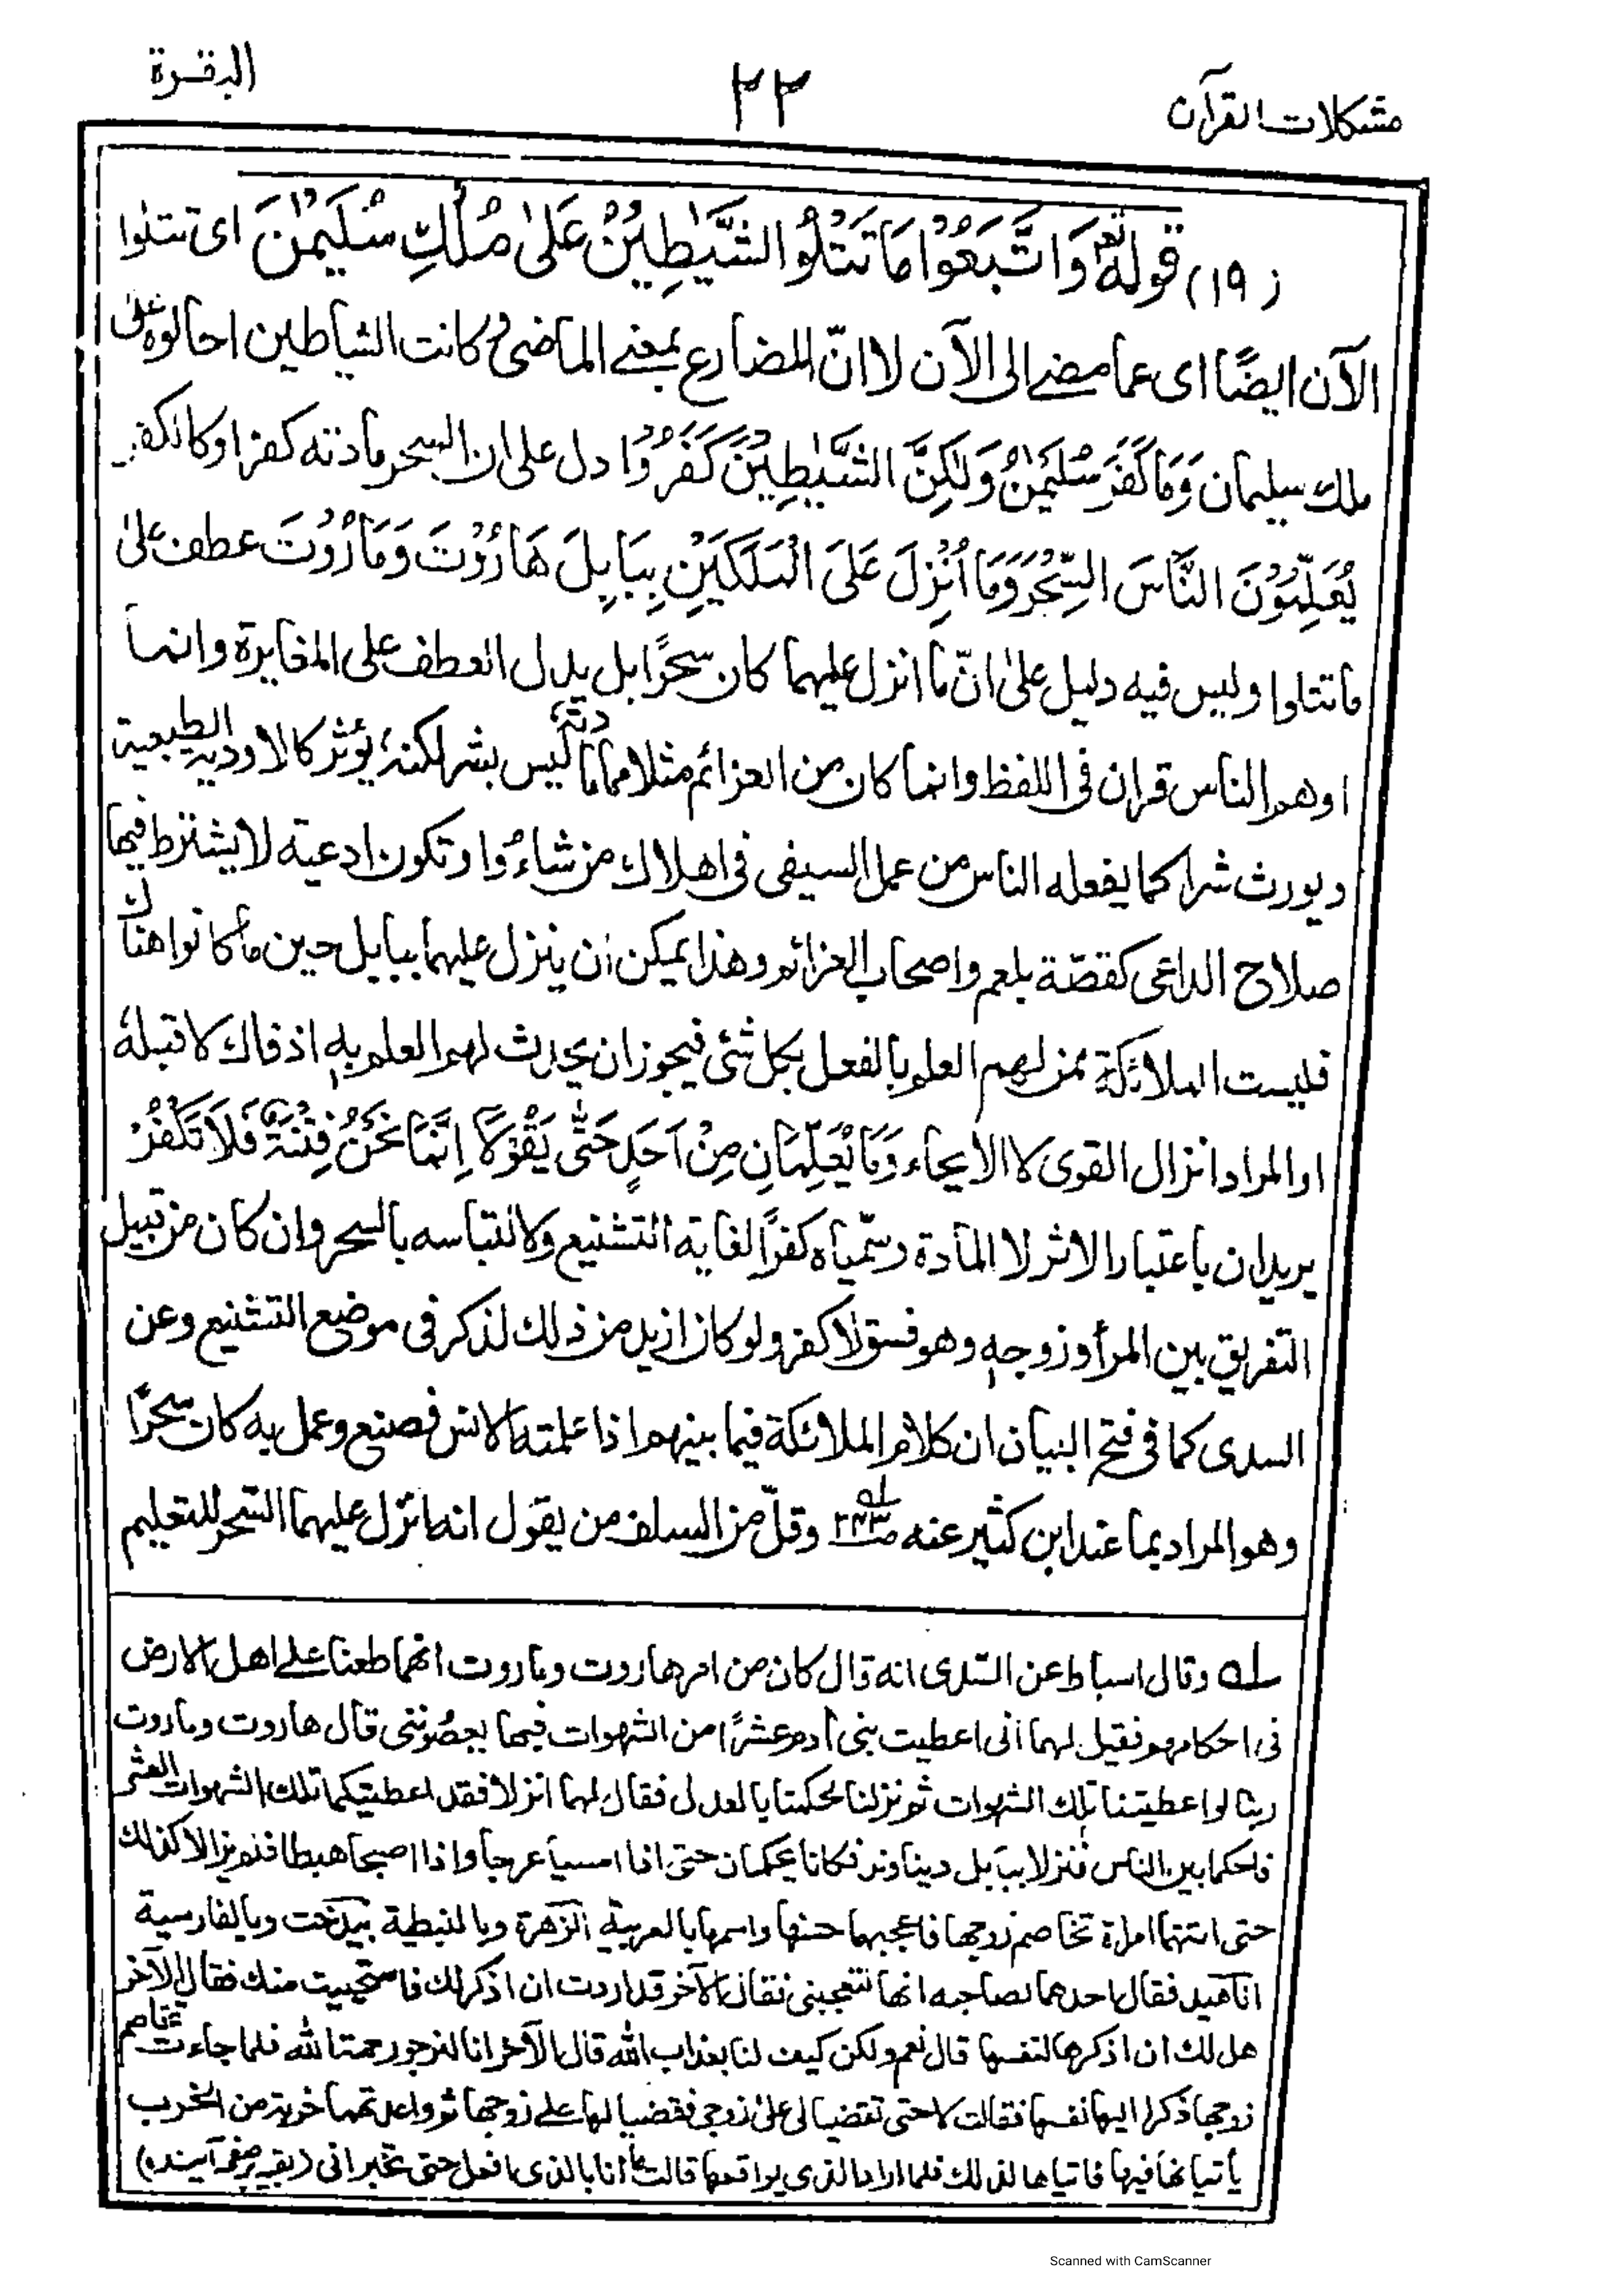 مشكلات القرآن
٢٣
البقرة
(١٩) قوله تعالى وَاتَّبَعُوْا مَا تَتْلُوا الشَّيٰطِيْنُ عَلٰى مُلْكِ سُلَيْمٰنَ اى تتلوا
الآن ايضًا اى عما مضى الى الآن لا انّ المضارع بمعنى الماضى و كانت الشياطين احالوه على
ملك سليمان وَمَا كَفَرَ سُلَيْمٰنُ وَلٰكِنَّ الشَّيٰطِيْنَ كَفَرُوْا دل على ان السحر مادته كفر او كالكفر
يُعَلِّمُوْنَ النَّاسَ السِّحْرَ وَمَا اُنْزِلَ عَلَى الْمَلَكَيْنِ بِبَابِلَ هَارُوْتَ وَمَارُوْتَ عطف على
ما تتلوا وليس فيه دليل على انّ ما انزل عليهما كان سحرًا بل يدل العطف على المغايرة وانما
اوهم الناس قران فى اللفظ وانما كان من العزائم مثلا مما مادته ليس بشر لكنه يؤثر كالاودية الطبعية
ويورث شرا كما يفعله الناس من عمل السيفى فى اهلاك من شاءوا وتكون ادعية لا يشترط فيها
صلاح الداعى كقصّة بلعم واصحاب العزائم وهذا يمكن ان ينزل عليهما ببابل حين ما كانوا هناك
فليست الملائكة ممن لهم العلم بالفعل بكل شئ فيجوز ان يحدث لهم العلم به اذ ذاك لا قبله
او المراد انزال القوى لا الايحاء وَمَا يُعَلِّمَانِ مِنْ اَحَدٍ حَتّٰى يَقُوْلَا اِنَّمَا نَحْنُ فِتْنَةٌ فَلَا تَكْفُرْ
يريدان باعتبار الاثر لا المادة وسمّياه كفرًا لغاية التشنيع ولالتباسه بالسحر وان كان من قبيل
التفريق بين المرأ وزوجه وهو فسق لا كفر ولو كان ازيد من ذلك لذكر فى موضع التشنيع وعن
السدى كما فى فتح البيان ان كلام الملائكة فيما بينهم اذا علمته الانس فصنع وعمل به كان سحرًا
وهو المراد بما عند ابن كثير عنه وقلّ من السلف من يقول انه انزل عليهما السحر للتعليم
له وقال اسباط عن السدى انه قال كان من امر هاروت وماروت انهما طعنا على اهل الارض
فى احكامهم فقيل لهما انى اعطيت بنى آدم عشرًا من الشهوات فبها يعصوننى قال هاروت وماروت
ربنا لو اعطيتنا تلك الشهوات ثم نزلنا لحكمنا بالعدل فقال لهما انزلا فقد اعطيتكما تلك الشهوات العشر
فاحكما بين الناس فنزلا ببابل ديناوند فكانا يحكمان حتى اذا امسيا عرجا واذا اصبحا هبطا فلم يزالا كذلك
حتى اتتهما امراة تخاصم زوجها فاعجبهما حسنها واسمها بالعربية الزهرة وبالنبطية بيدخت وبالفارسية
اناهيد فقال احدهما لصاحبه انها لتعجبنى فقال الآخر قد اردت ان اذكر لك فاستحييت منك فقال الآخر
هل لك ان اذكرها لنفسها قال نعم ولكن كيف لنا بعذاب الله قال الآخر انا لنرجو رحمة الله فلما جاءت تخاصم
زوجها ذكرا اليها نفسها فقالت لا حتى تقضيا لى على زوجى فقضيا لها على زوجها ثم واعدتهما خربة من الخرب
يأتيانها فيها فاتياها لذلك فلما اراد الذى يواقعها قالت ما انا بالذى افعل حتى تخبرانى (بقيه بر صفحه آينده)
Scanned with CamScanner